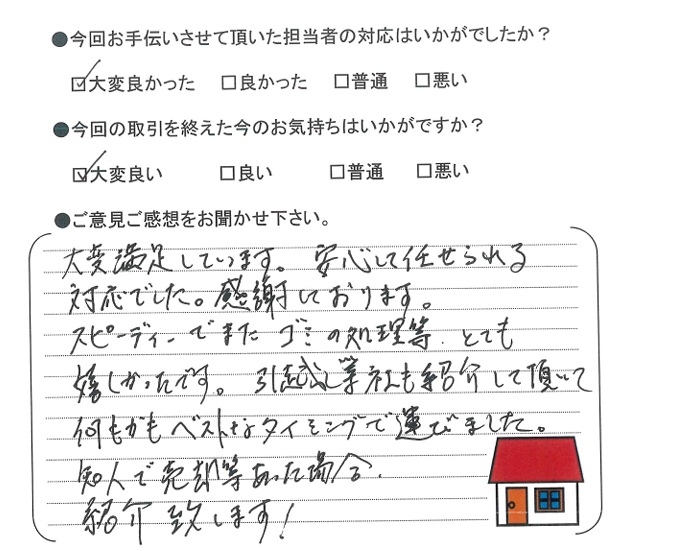 ●今回お手伝いさせて頂いた担当者の対応はいかがでしたか？
☑大変良かった □良かった □普通 □悪い
●今回の取引を終えた今のお気持ちはいかがですか？
☑大変良い □良い □普通 □悪い
●ご意見ご感想をお聞かせ下さい。
大変満足しています。安心して任せられる
対応でした。感謝しております。
スピーディーでまたゴミの処理等、とても
嬉しかったです。引越し業社も紹介して頂いて
何もかもベストなタイミングで運びました。
知人で売却等あった場合、
紹介致します!